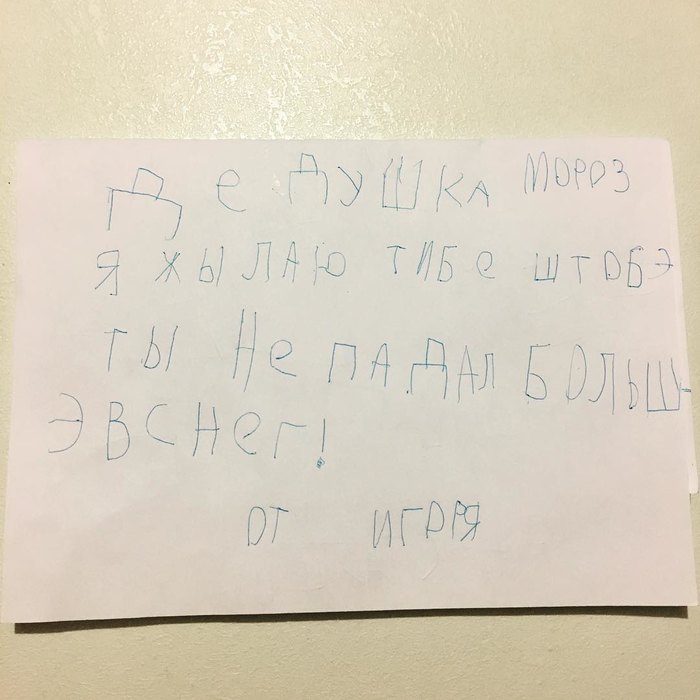 Дедушка Мороз
я жылаю тибе штобэ
ты не падал больш-
э вснег!
от Игоря